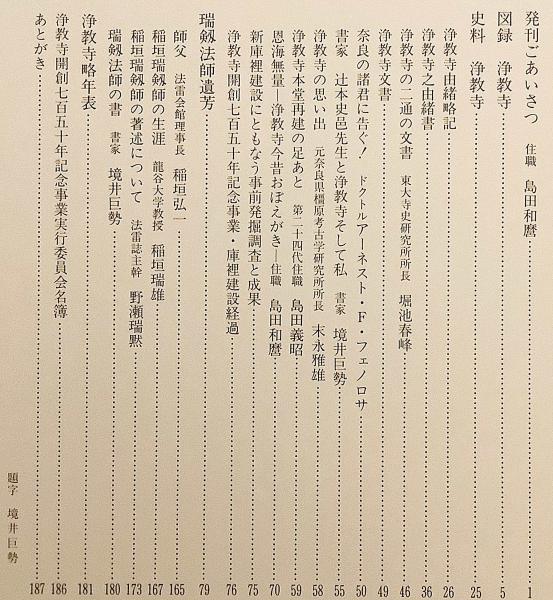 発刊ごあいさつ 住職 島田和麿……1
図録 浄教寺……5
史料 浄教寺……25
浄教寺由緒略記……26
浄教寺之由緒書……36
浄教寺の二通の文書 東大寺史研究所所長 堀池春峰……46
浄教寺文書……49
奈良の諸君に告ぐ! ドクトルアーネスト・F・フェノロサ……50
書家 辻本史邑先生と浄教寺そして私 書家 境井巨勢……55
浄教寺の思い出 元奈良県橿原考古学研究所所長 末永雅雄……58
浄教寺本堂再建の足あと 第二十四代住職 島田義昭……59
恩海無量―浄教寺今昔おぼえがき―住職 島田和麿……70
新庫裡建設にともなう事前発掘調査と成果……75
浄教寺開創七百五十年記念事業・庫裡建設経過……76
瑞剱法師遺芳……79
師父 法雷会館理事長 稲垣弘一……165
稲垣瑞剱師の生涯 龍谷大学教授 稲垣瑞雄……167
稲垣瑞剱師の著述について 法雷誌主幹 野瀬瑞黙……173
瑞剱法師の書 書家 境井巨勢……180
浄教寺略年表……181
浄教寺開創七百五十年記念事業実行委員会名簿……186
あとがき……187
題字 境井巨勢